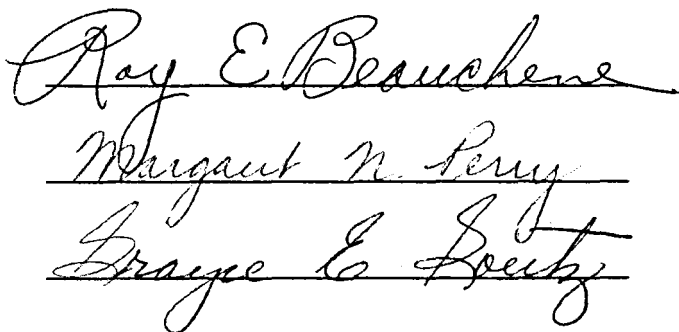 Roy E Beauchene
Margaret N Perry
Grayce E Goertz